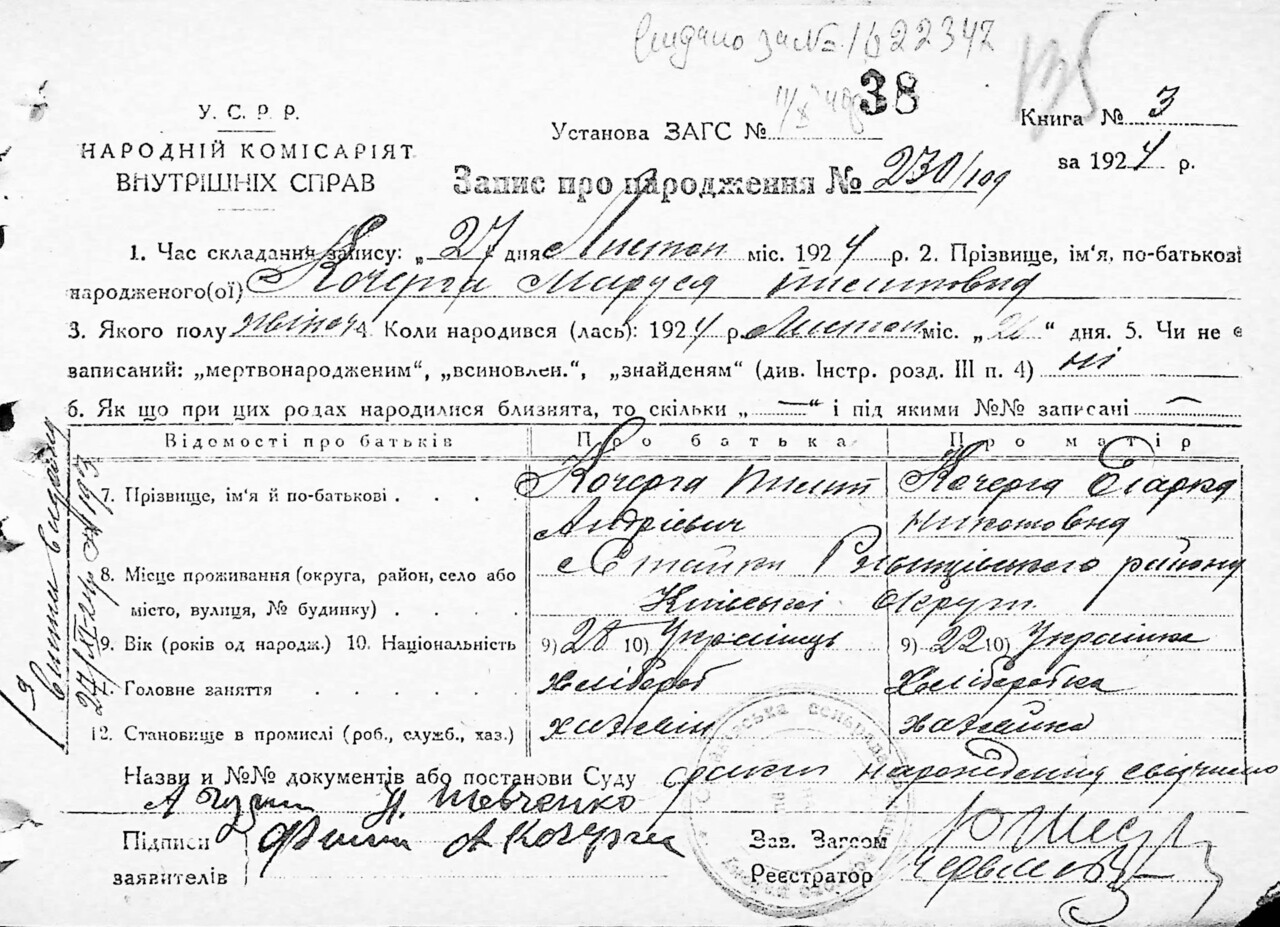 Видано за № 1622347
38
У. С. Р. Р.
НАРОДНІЙ КОМІСАРІЯТ
ВНУТРІШНІХ СПРАВ
Установа ЗАГС №
Книга № 3
за 1924 р.
Запис про народження № 230/109
1. Час складання запису: „27 дня Листоп міс. 1924 р. 2. Прізвище, ім‘я, по-батькові
народженого(ої) Кочерга Маруся Пилиповна
3. Якого полу жіноч 4. Коли народився (лась): 1924 р. Листоп міс. „21“ дня. 5. Чи не є
записаний: „мертвонародженим“, „всиновлен.“, „знайденям“ (див. Інстр. розд. III п. 4) ні
6. Як що при цих родах народилися близнята, то скільки „—“ і під якими №№ записані —
Відомості про батьків Про батька Про матір
7. Прізвище, ім‘я й по-батькові . . . . Кочерга Пилип Кочерга Одарка
Андрієвич
8. Місце проживання (округа, район, село або Стайки Ржищівського району
місто, вулиця, № будинку) . . . . Київської Округи
9. Вік (років од народж.) 10. Національність 9) 28 10) Українець 9) 22 10) Українка
Головне заняття . . . . . Хлібороб Хлібо­робка
12. Становище в промислі (роб., служб., хаз.) хазяїн хазяйка
Назви и №№ документів або постанови Суду
Н. Шевченко
Підписи А Кочерга Зав. Загсом
заявителів Реєстратор